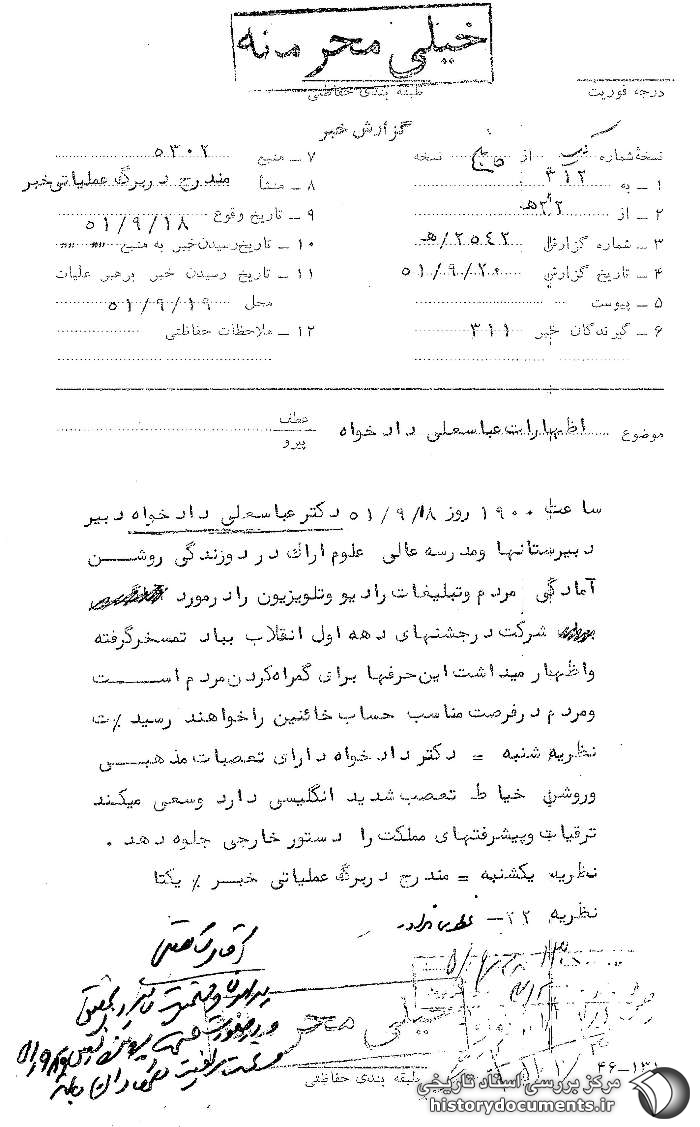 خیلی محرمانه
درجه فوریت
طبقه بندی حفاظتی
گزارش خبر
نسخه شماره یک از پنج نسخه
۱ ـ به ۳۱۲
۲ ـ از ۲۲ ه‍
۳ ـ شماره گزارش ۲۵۴۲/ه‍
۴ ـ تاریخ گزارش ۵۱/۹/۲۰
۵ ـ پیوست
۶ ـ گیرندگان خبر ۳۱۱
۷ ـ منبع ۵۳۰۲
۸ ـ منشأ مندرج در برگ عملیاتی خبر
۹ ـ تاریخ وقوع ۵۱/۹/۱۸
۱۰ ـ تاریخ رسیدن خبر به منبع
۱۱ ـ تاریخ رسیدن خبر برهبر عملیات
محل ۵۱/۹/۱۹
۱۲ ـ ملاحظات حفاظتی
موضوع اظهارات عباسعلی دادخواه
عطف
پیرو
ساعت ۱۹۰۰ روز ۵۱/۹/۱۸ دکتر عباسعلی دادخواه دبیر
دبیرستانها ومدرسه عالی علوم اراک در دوزندگی روشن
آمادگی مردم وتبلیغات رادیو وتلویزیون را درمورد
شرکت درجشنهای دهه اول انقلاب بباد تمسخرگرفته
واظهار میداشت این حرفها برای گمراه کردن مردم است
ومردم درفرصت مناسب حساب خائنین را خواهند رسید ٪ت
نظریه شنبه = دکتر دادخواه دارای تعصبات مذهبی
وروشن خیاط تعصب شدید انگلیسی دارد وسعی میکند
ترقیات وپیشرفتهای مملکت را دستور خارجی جلوه دهد .
نظریه یکشنبه = مندرج در برگ عملیاتی خبر ٪ یکتا
نظریه ۲۲ـ نظری ندارد.
خیلی محرمانه
طبقه بندی حفاظتی
۴۶-۱۳۱
مرکز بررسی اسناد تاریخی
historydocuments.ir